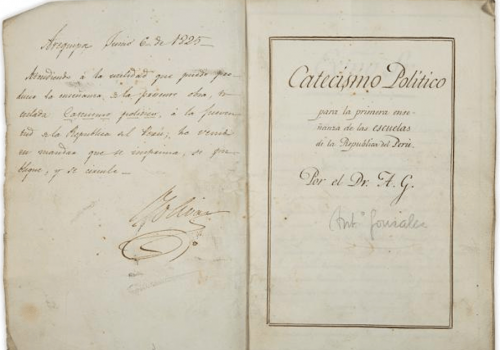 Arequipa Junio 6 de 1825—
Atendiendo á la utilidad que puede pro-
ducir la enseñanza de la presente obra, ti-
tulada Catecismo político, á la juven-
tud de la Republica del Perú; he venido
en mandar que se imprima, se pu-
blique, y se circule—
Bolivar
Catecismo Politico
para la primera ense-
ñanza de las escuelas
de la Republica del Perú.
Por el Dr. A. G.
(Antº Gonzalez